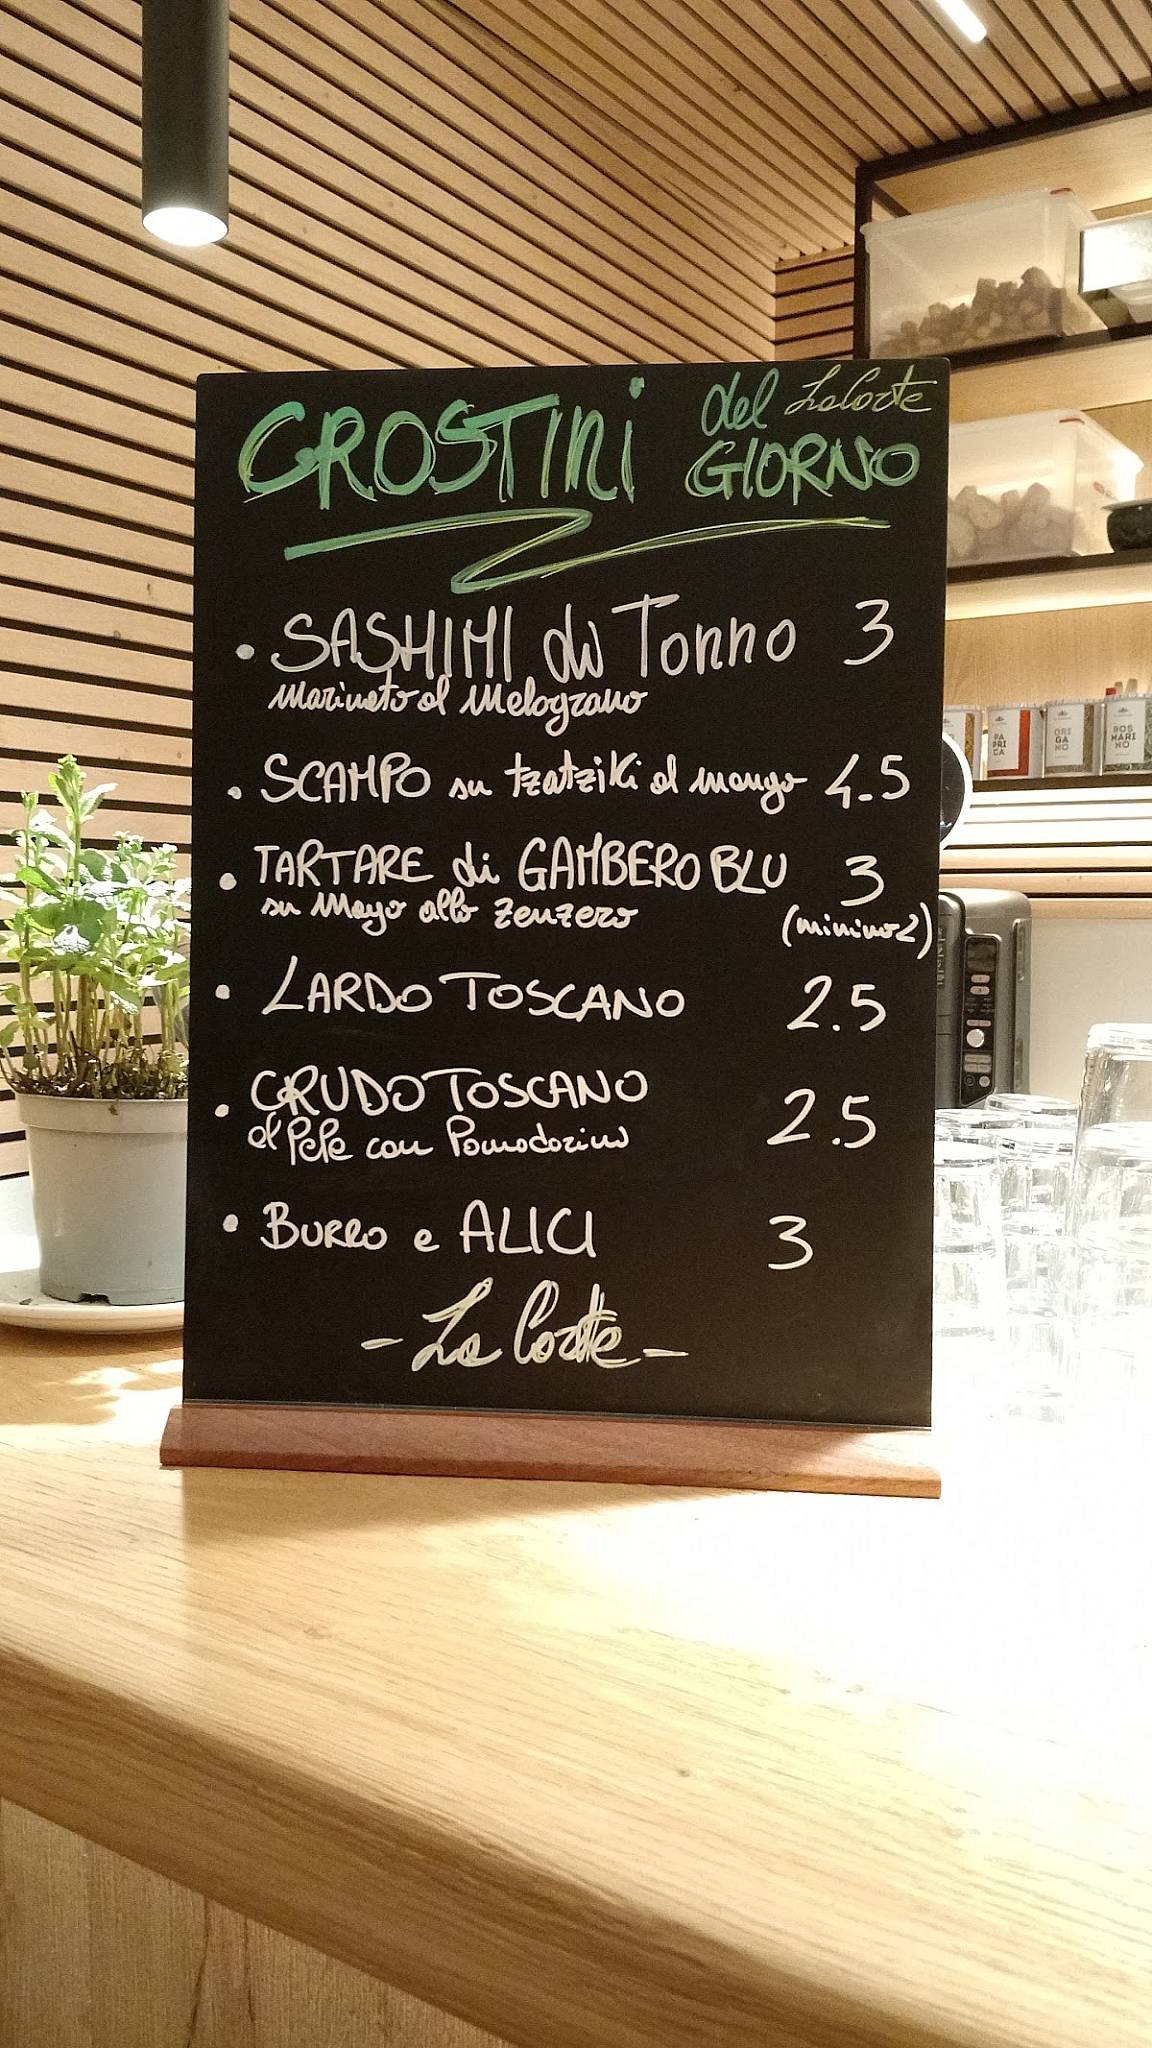 CROSTINI del La Corte
GIORNO
• SASHIMI di Tonno 3
Marinato al Melograno
• SCAMPO su tzatziki al mango 4.5
• TARTARE di GAMBERO BLU 3
su Mayo allo zenzero (minimo 2)
• LARDO TOSCANO 2.5
• CRUDO TOSCANO 2.5
al Pepe con Pomodorino
• BURRO e ALICI 3
- La Corte -
PAPRICA
ORIGANO
ROSMARINO